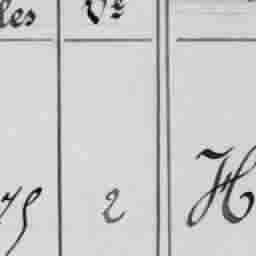 les Vᵉ
75 2 H